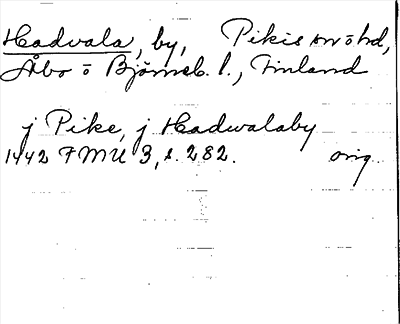 Hadvala, by, Pikis sn o hd,
Åbo o Björneb. l., Finland
j Pike, j Hadwalaby
1442 FMU 3, s. 282. orig.